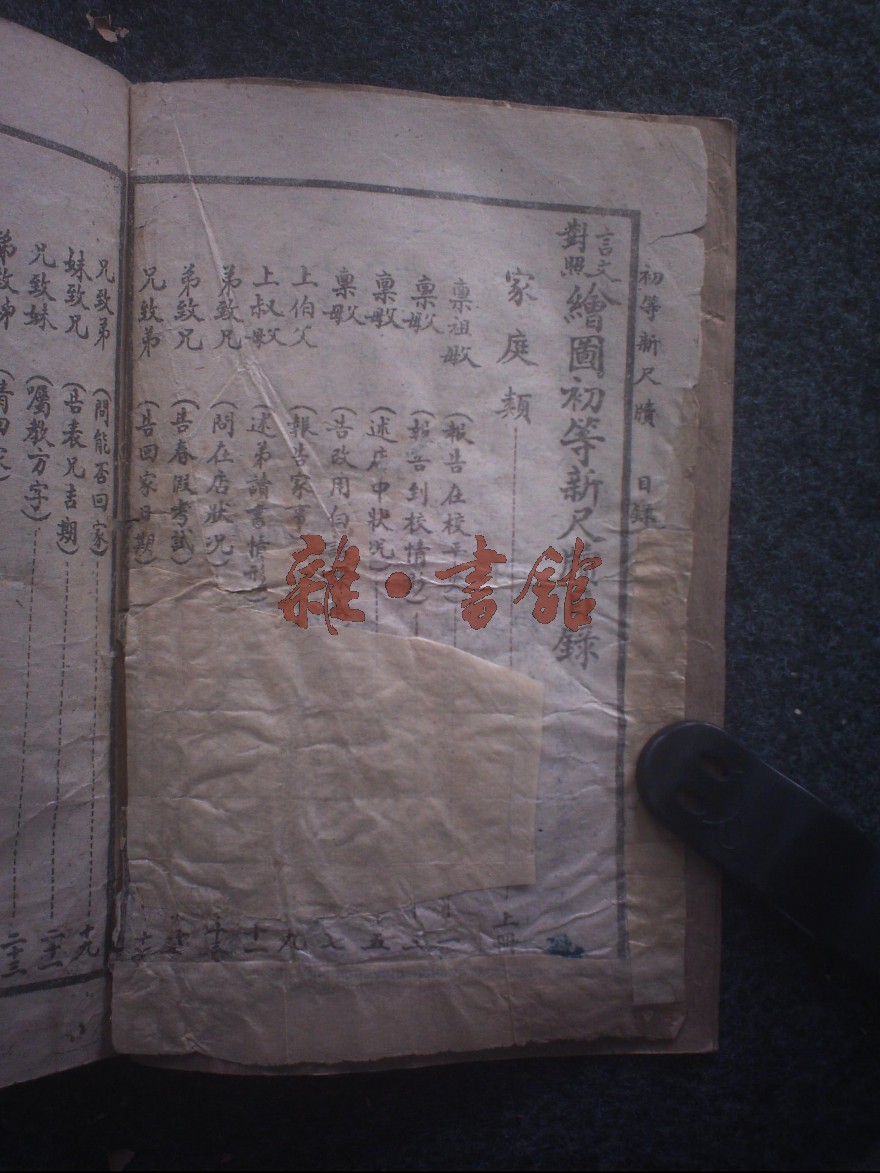 初等新尺牘 目錄
言文對照繪圖初等新尺牘目錄
家庭類 上冊
稟祖母（報告在校 一
稟父（報告到校情
稟母（述店中狀况） 五
稟母（告改用白 七
上伯父（報告家事 九
上叔母（述弟讀書情形 十一
弟致兄（問在店狀况）
弟致兄（告春假考試）
兄致弟（告回家日期）
兄致弟（問能否回家） 十九
妹致兄（告表兄吉期） 二十一
兄致妹（囑教方字） 二十三
弟致姊（請回家）
雜·書館